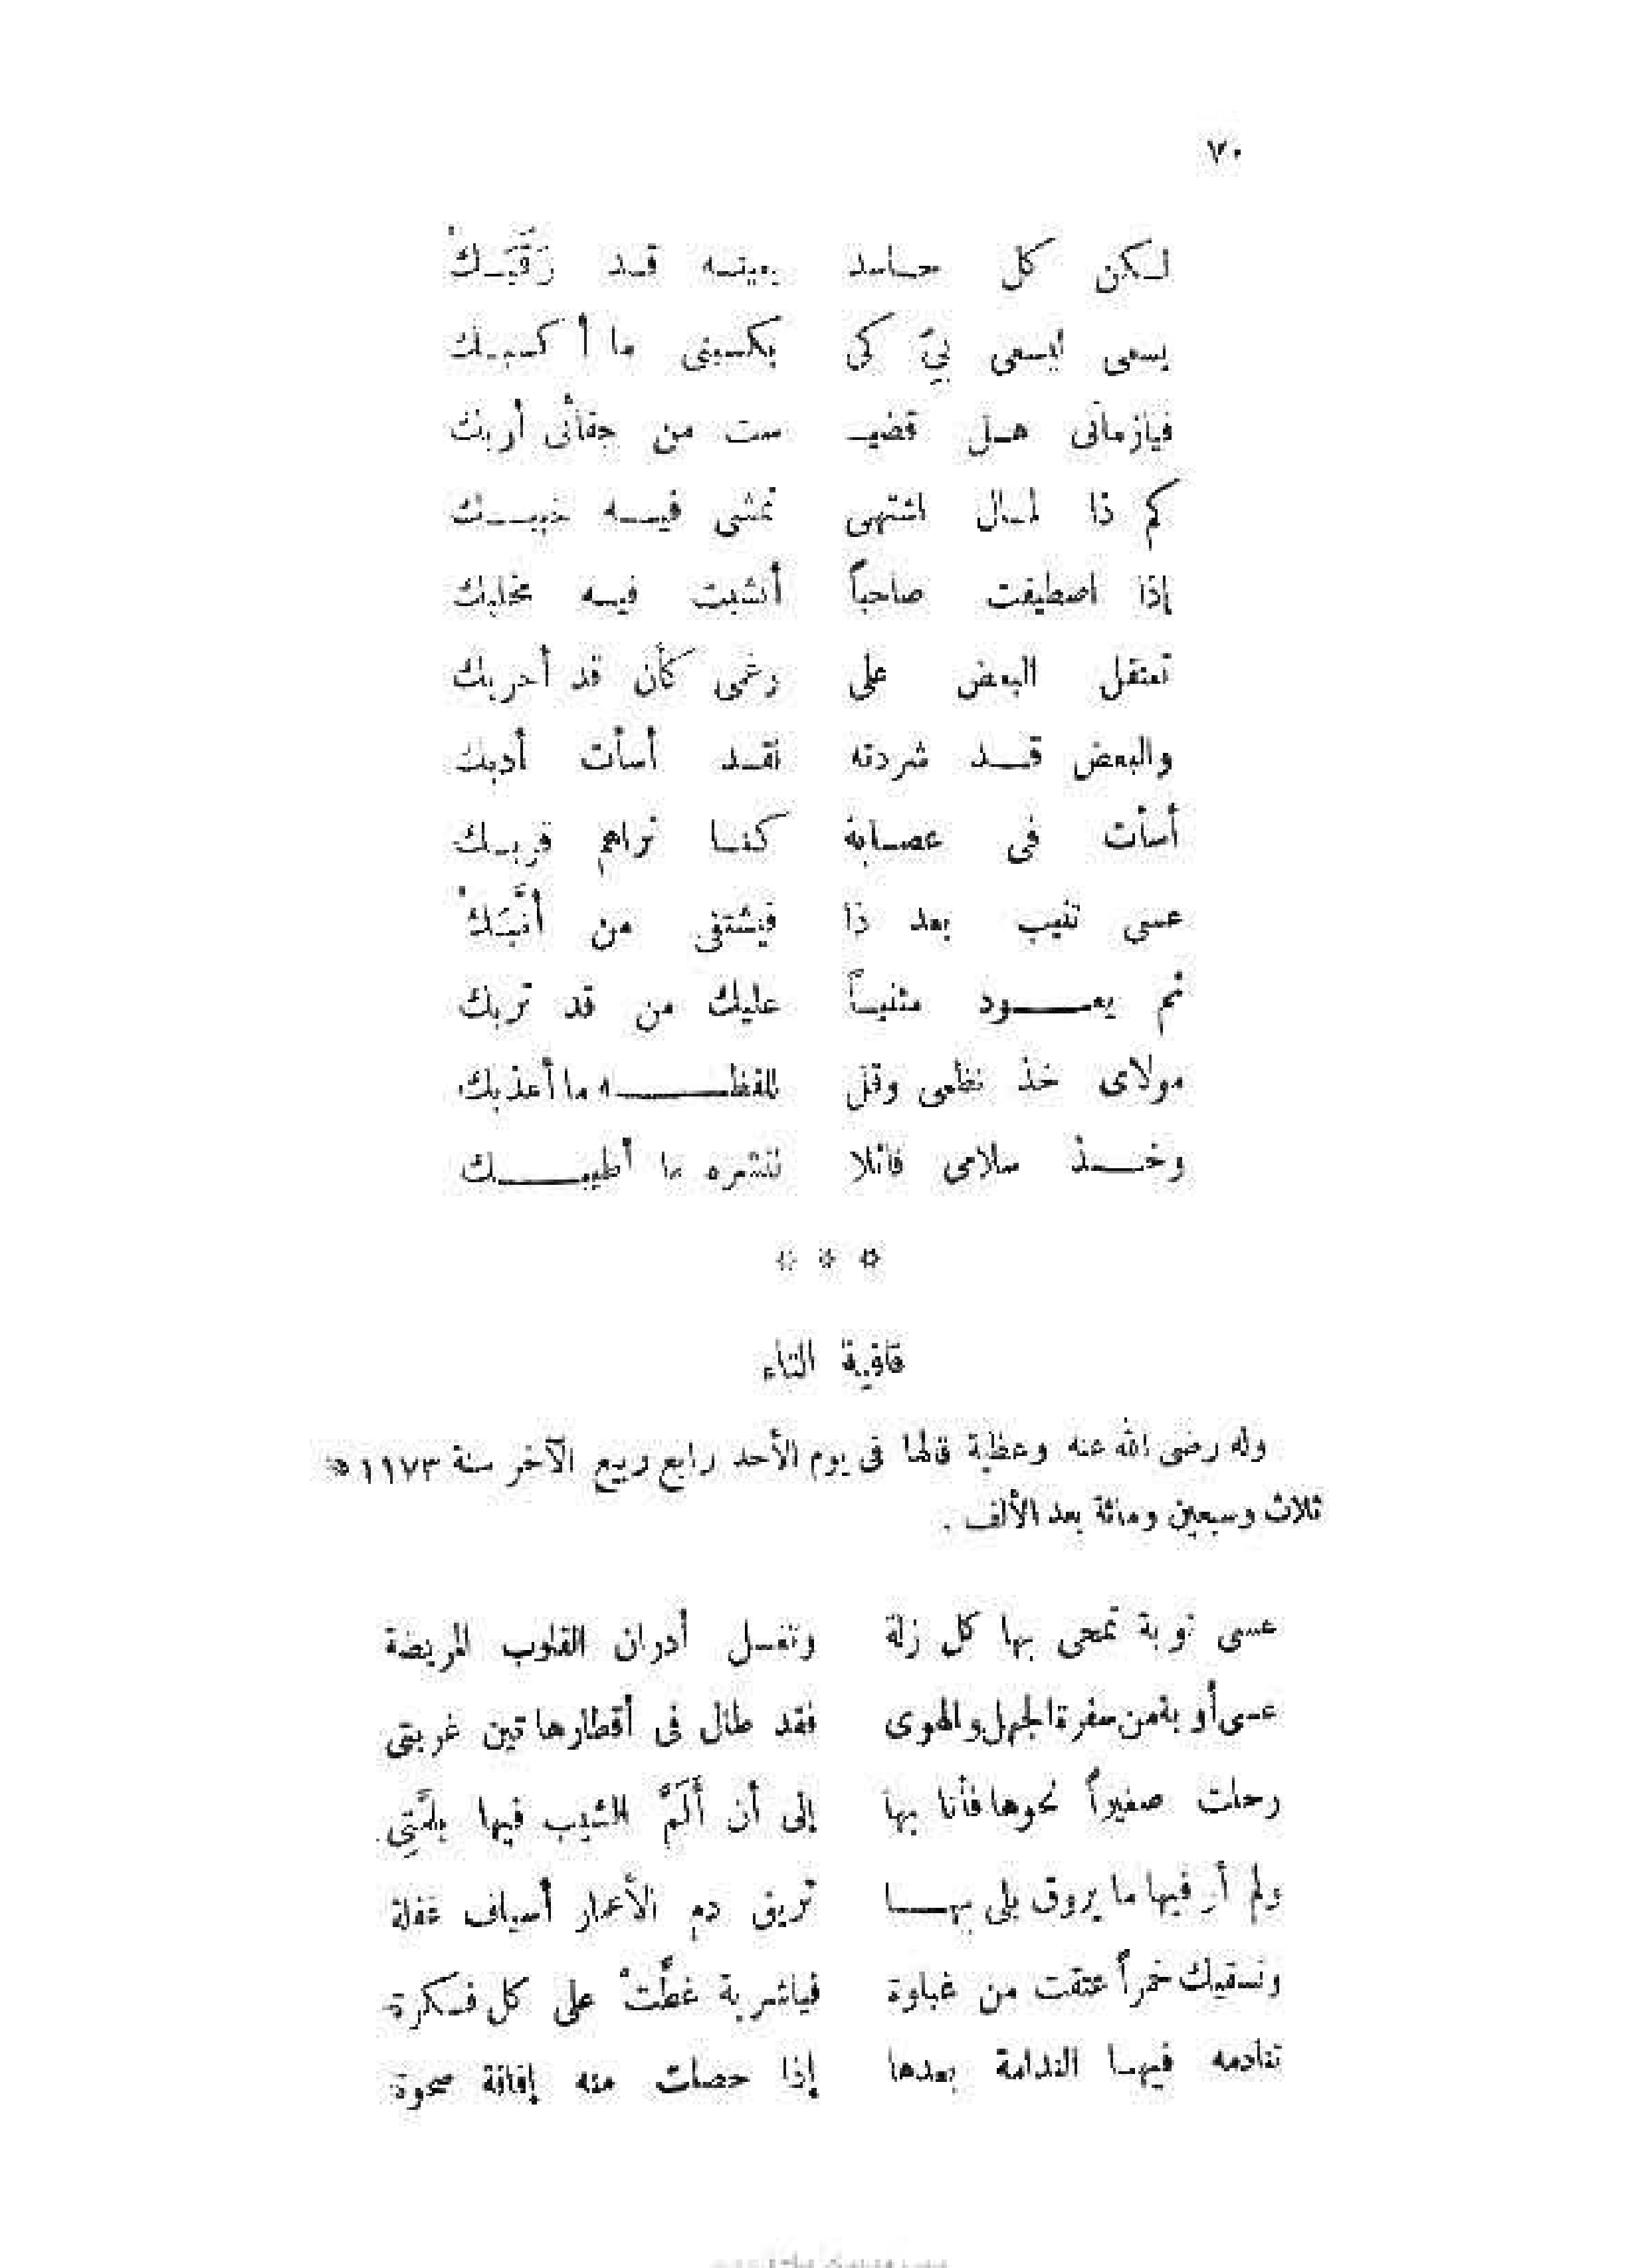 ٧٠
لكن كل حاسد بعينه قد رَقَبَكْ
يسعى ليسعى بِيَ كى يكسبنى ما أكسبك
فيازمانى هل قضيـ ـت من جفائى أربك
كم ذا لمال اشتهى تمشى فيه خببك
إذا اصطفيت صاحباً أنشبت فيه مخلبك
تعتقل البعض على رغمى كأن قد أحربك
والبعض قد شردته لقد أسأت أدبك
أسأت فى عصابة كنا نراهم قربك
عسى تنيب بعد ذا فيشتفى من أنَّبَكْ
ثم يعود مثنياً عليك من قد تربك
مولاى خذ نظمى وقل للفظه ما أعذبك
وخذ سلامى قائلا لنشره ما أطيبك
* * *
قافية التاء
وله رضى الله عنه وعظية قالها فى يوم الأحد رابع ربيع الآخر سنة ١١٧٣ *
ثلاث وسبعين ومائة بعد الألف .
عسى توبة تمحى بها كل زلة وتغسل أدران القلوب المريضة
عسى أوبة من سفرة الجهل والهوى فقد طال فى أقطارها تين غربتى
رحلت صغيراً نحوها فأنا بها إلى أن أَلَمَّ الشيب فيها بلمَّتِى
ولم أر فيها ما يروق بلى بها تريق دم الأعمار أسياف غفلة
ونسقيك خمراً عتقت من غباوة فياشربة غطَّتْ على كل فكرة
تنادمه فيها الندامة بعدها إذا حصلت منه إفاقة صحوة